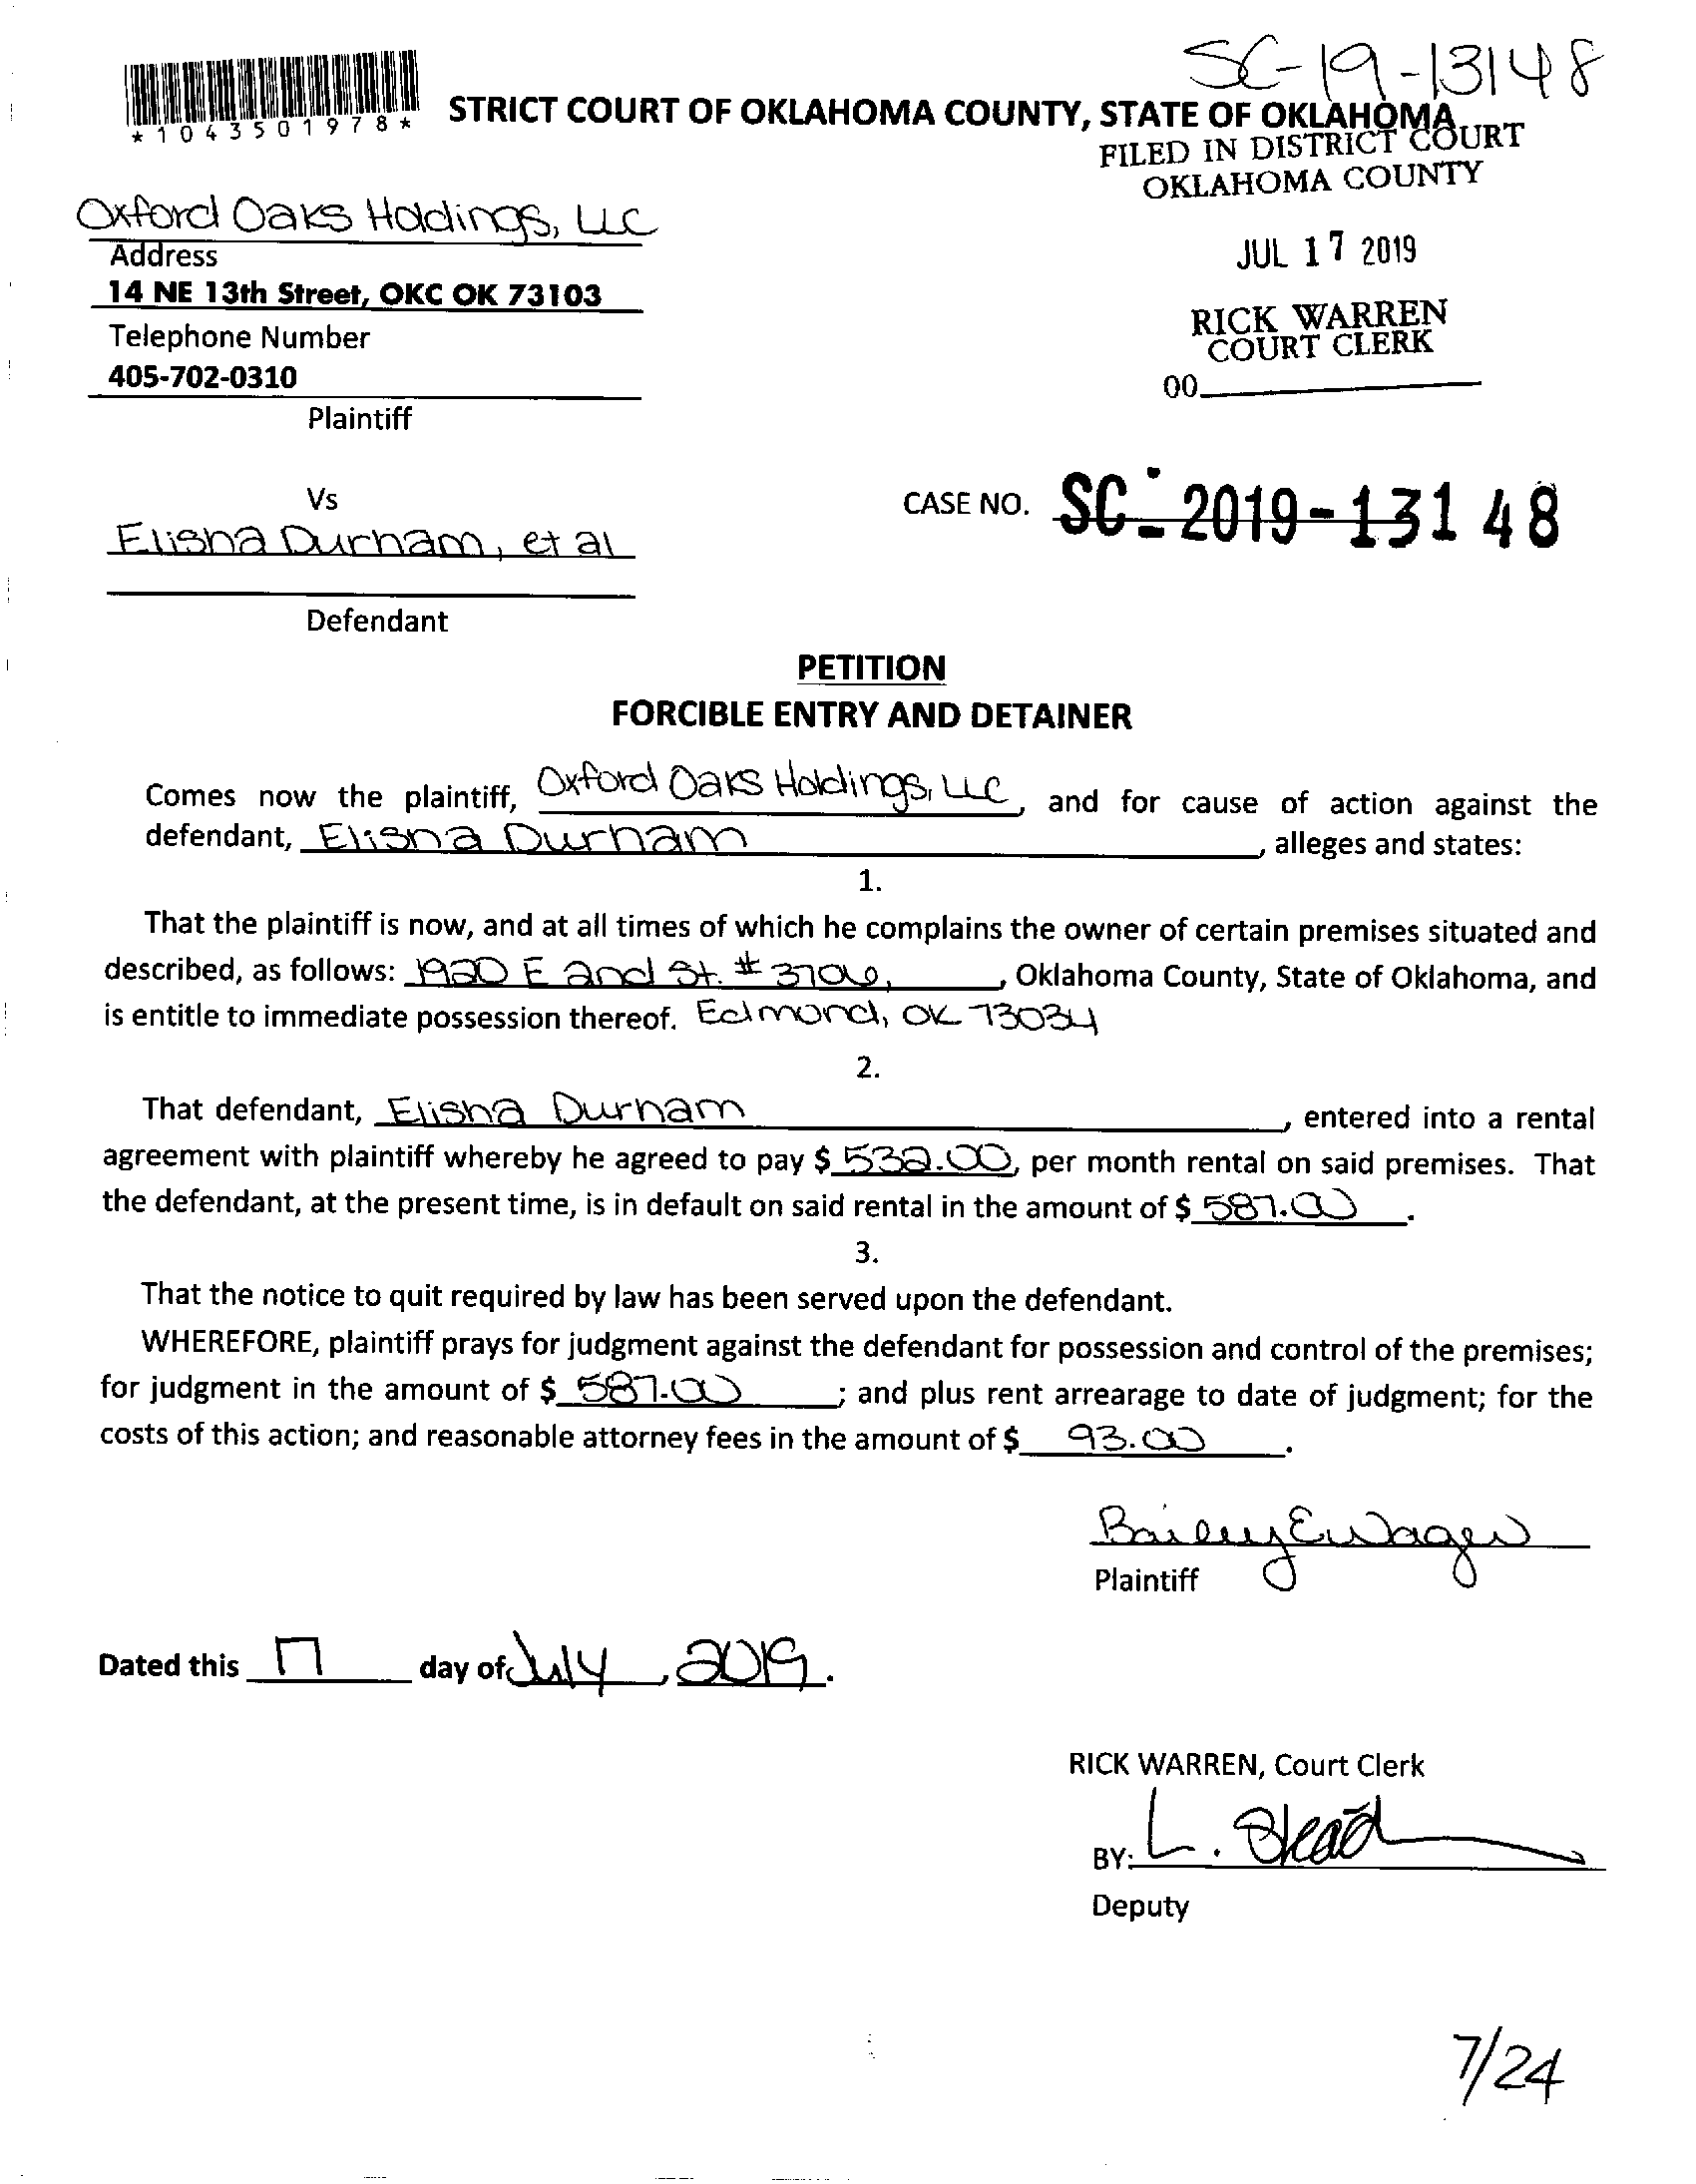 SC-19-13148
*1043501978*
STRICT COURT OF OKLAHOMA COUNTY, STATE OF OKLAHOMA
FILED IN DISTRICT COURT
OKLAHOMA COUNTY
JUL 17 2019
RICK WARREN
COURT CLERK
00
Oxford Oaks Holdings, LLC
Address
14 NE 13th Street, OKC OK 73103
Telephone Number
405-702-0310
Plaintiff
Vs
CASE NO. SC-2019-13148
Elisha Durham, et al
Defendant
PETITION
FORCIBLE ENTRY AND DETAINER
Comes now the plaintiff, Oxford Oaks Holdings, LLC, and for cause of action against the
defendant, Elisha Durham, alleges and states:
1.
That the plaintiff is now, and at all times of which he complains the owner of certain premises situated and
described, as follows: 1920 E 2nd St. # 3706, , Oklahoma County, State of Oklahoma, and
is entitle to immediate possession thereof. Edmond, OK 73034
2.
That defendant, Elisha Durham, entered into a rental
agreement with plaintiff whereby he agreed to pay $ 532.00, per month rental on said premises. That
the defendant, at the present time, is in default on said rental in the amount of $ 587.00.
3.
That the notice to quit required by law has been served upon the defendant.
WHEREFORE, plaintiff prays for judgment against the defendant for possession and control of the premises;
for judgment in the amount of $ 587.00; and plus rent arrearage to date of judgment; for the
costs of this action; and reasonable attorney fees in the amount of $ 93.00.
Bailey E Wagew
Plaintiff
Dated this 17 day of July, 2019.
RICK WARREN, Court Clerk
BY: L.
Deputy
7/24